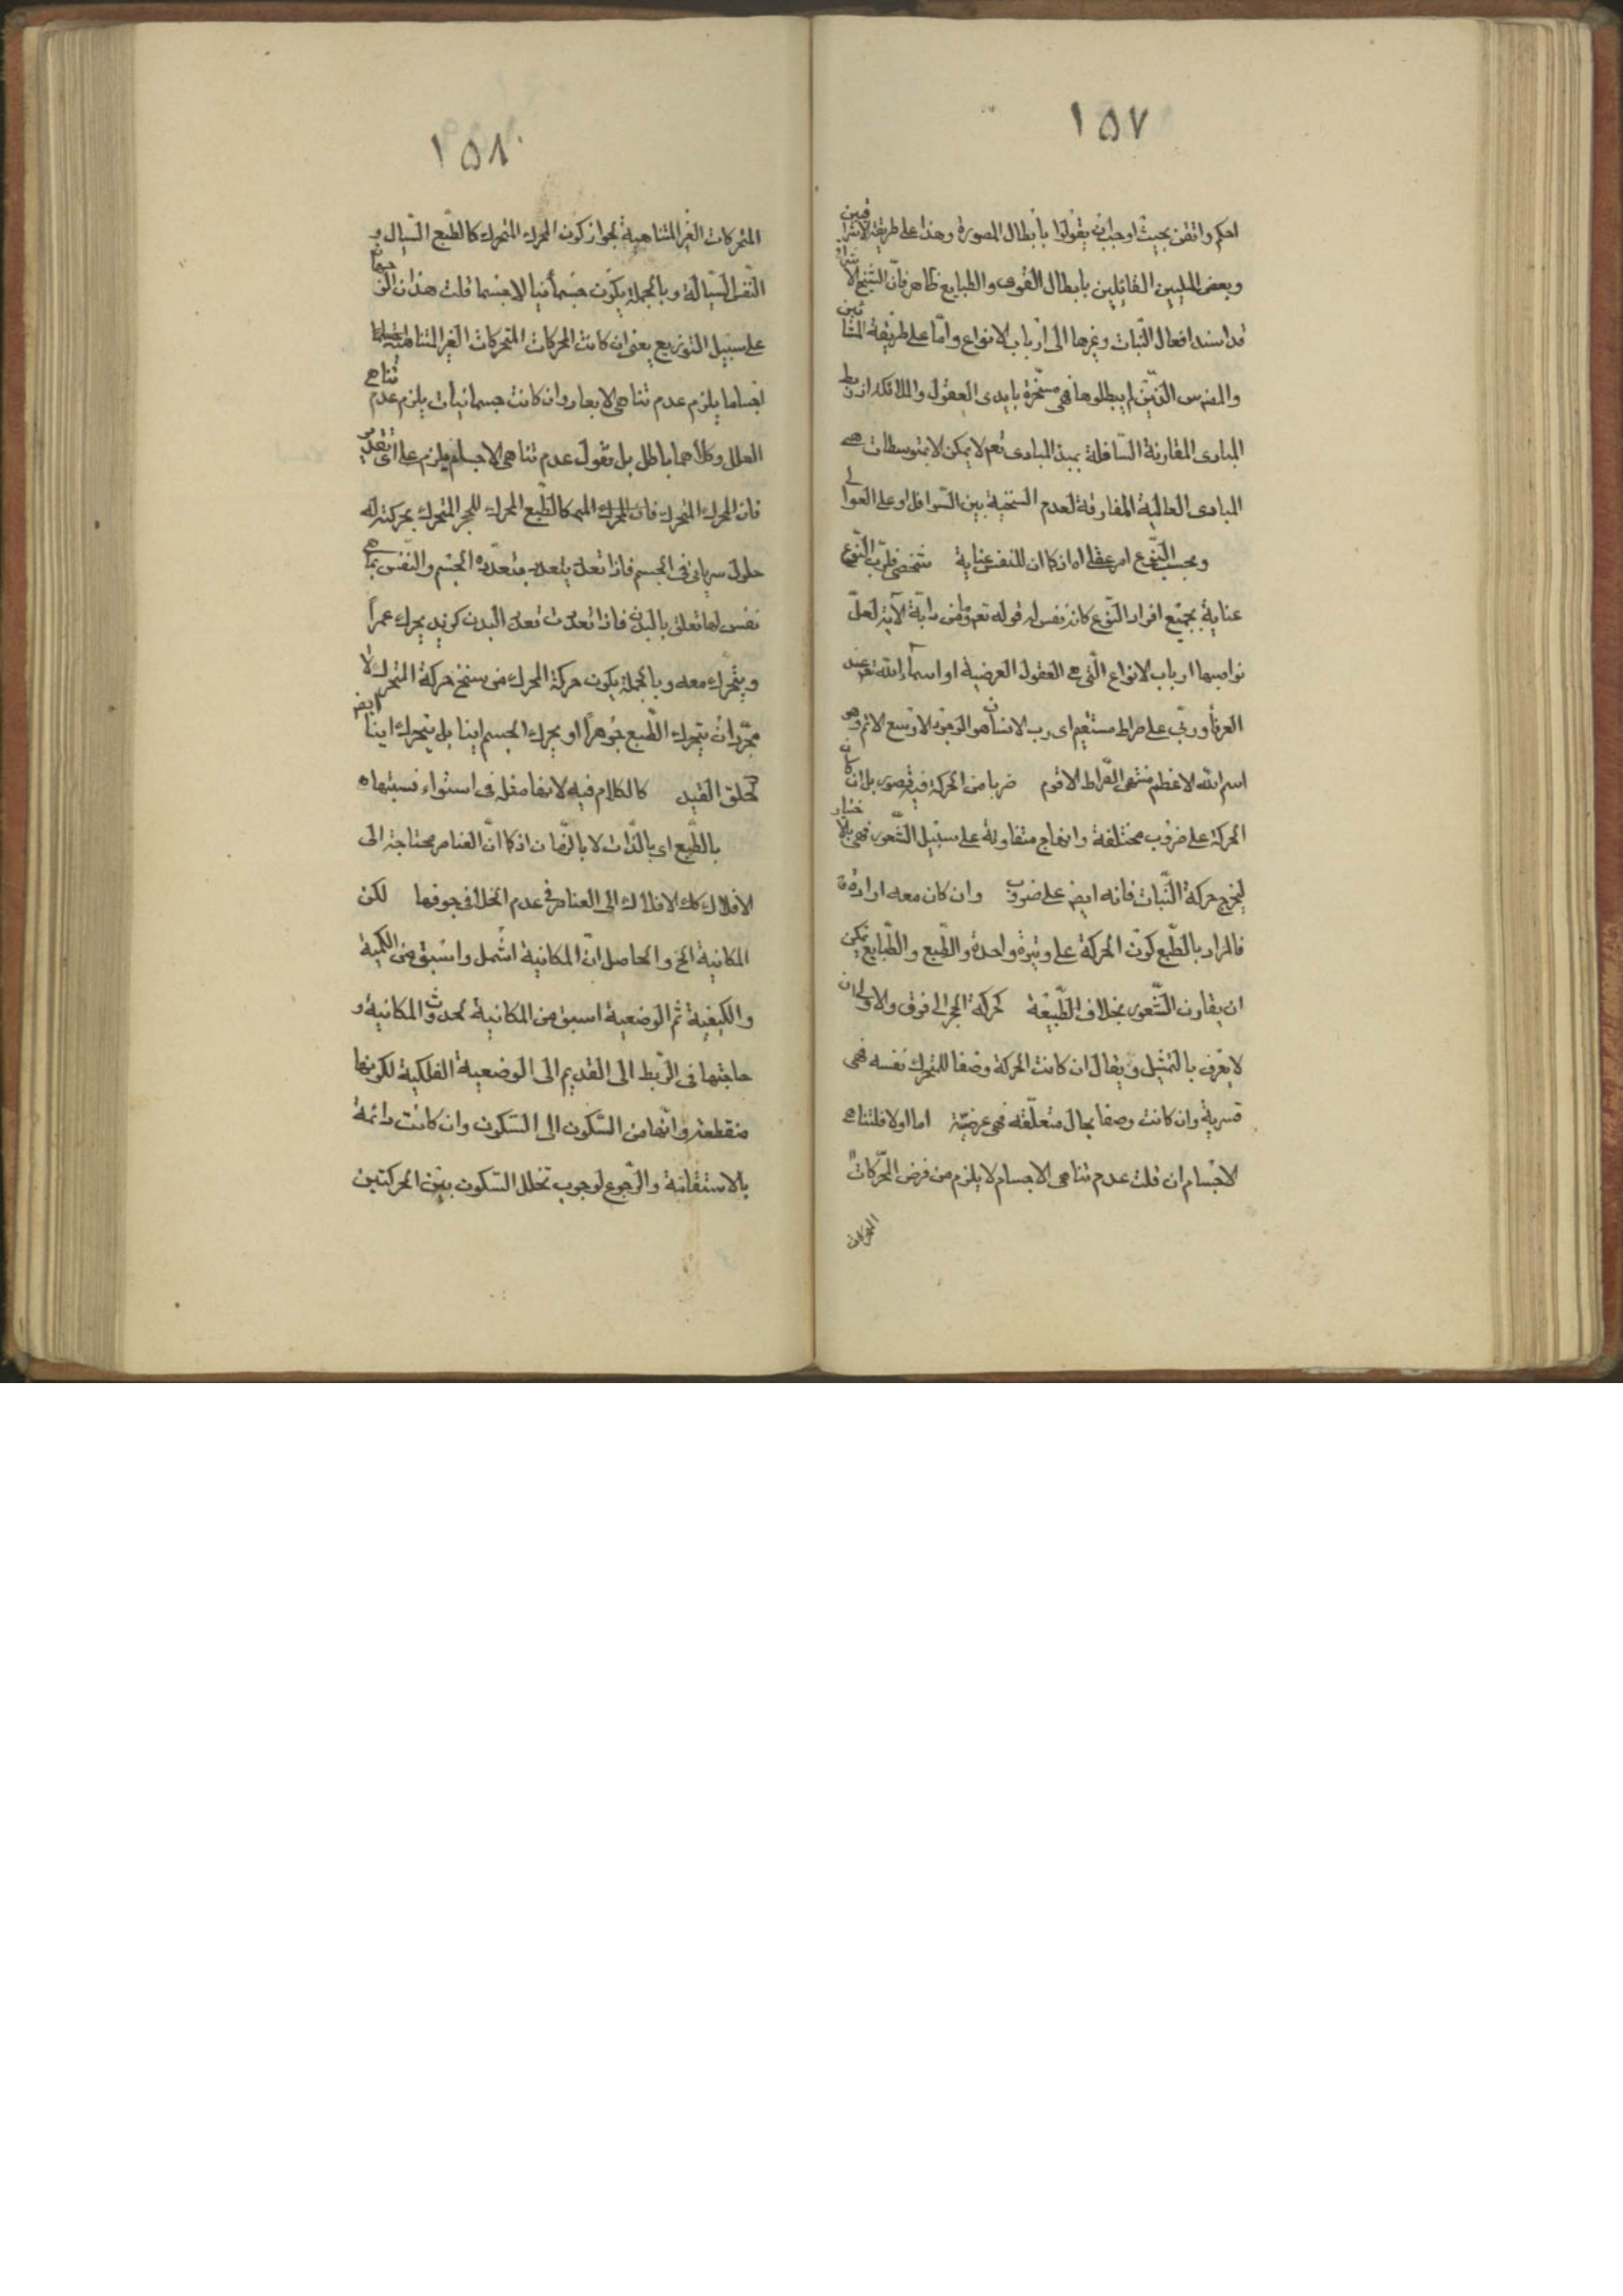 ١٥٧
احكم واتقن بحيث اوجب ان يقولوا بابطال المصورة وهذا على طريقة الاشراقيين
وبعض المليين القائلين بابطال القوى والطبايع ظاهر فان الشيخ
قد اسند افعال النبات وغيرها الى ارباب الانواع واما على طريقة المشائين
والمفرس الذين لم يبطلوها فهى مسخرة بايدى العقول والملائكة اذ ربط
المبادى المقارنة السافلة بمبدء المبادى تعم لا يمكن الا بمتوسطات هى
المبادى العالية المفارقة لعدم السنخية بين السوافل واعلى العوالى
وبحسب النوع امر عقلى اذ كما ان للنفس عناية بشخص فلرب النوع
عناية بجميع افراد النوع كانه نفس له قوله تعم وما من دابة الآية لعل
نواصيها ارباب الانواع التى هى العقول العرضية او اسماء الله تعم عند
العرفاء وربى على صراط مستقيم اى رب الانسان هو الوجود الاوسع الاتم وهو
اسم الله الاعظم منتهى الصراط الاقوم ضربا من الحركة فيه قصور بل ان كان
الحركة على ضروب مختلفة وانهاج متفاوتة على سبيل الشعور فهى بالاختيار
ليخرج حركة النبات فانه ايض على ضروب وان كان معه ارادة
فالمراد بالطبع كون الحركة على وتيرة واحدة والطبع والطبايع يمكن
ان يقارن الشعور بخلاف الطبيعة كحركة الحجر الى فوق والاولى ان
لا يعرف بالتمثيل ويقال ان كانت الحركة وصفا للمتحرك نفسه فهى
قسرية وان كانت وصفا بحال متعلقه فهى عرضية اما اولا فلتناهى
الاجسام ان قلت عدم تناهى الاجسام لا يلزم من فرض المحركات
المتحركات
١٥٨
المتحركات الغير المتناهية لجواز كون المحرك المتحرك كالطبع السيال و
النفس السيالة وبالجملة يكون جسمانيا لا جسما قلت هذان
على سبيل التوزيع يعنى ان كانت المحركات المتحركات الغير المتناهية
اجساما يلزم عدم تناهى الابعاد وان كانت جسمانيات يلزم عدم تناهى
العلل وكلاهما باطل بل نقول عدم تناهى الاجسام يلزم على اى تقدير
فان المحرك المتحرك فان المحرك كالطبع المحرك للحجر المتحرك بحركته له
حلول سريانى فى الجسم فاذا تعدد يتعدد بتعدده الجسم والنفس بما هى
نفس لها تعلق بالبدن فاذا تعددت تعدد البدن كزيد يحرك عمرا
ويتحرك معه وبالجملة يكون حركة المحرك من سنخ حركة المتحرك لا
مجرد ان يتحرك الطبع جوهرا او يحرك الجسم اينا بل يتحرك اينا ايض
لحلق القيد كالكلام فيه لانها مثله فى استواء نسبتها
بالطبع اى بالذات لا بالزمان اذ كما ان العناصر محتاجة الى
الافلاك كك الافلاك الى العناصر فى عدم الخلا فى جوفها لكن
المكانية الخ والحاصل ان المكانية اشمل واسبق من الكمية
والكيفية ثم الوضعية اسبق من المكانية لحدوث المكانية و
حاجتها فى الربط الى القديم الى الوضعية الفلكية لكونها
منقطعة وانها من السكون الى السكون وان كانت دائمة
بالاستقامة والرجوع لوجوب تخلل السكون بين الحركتين